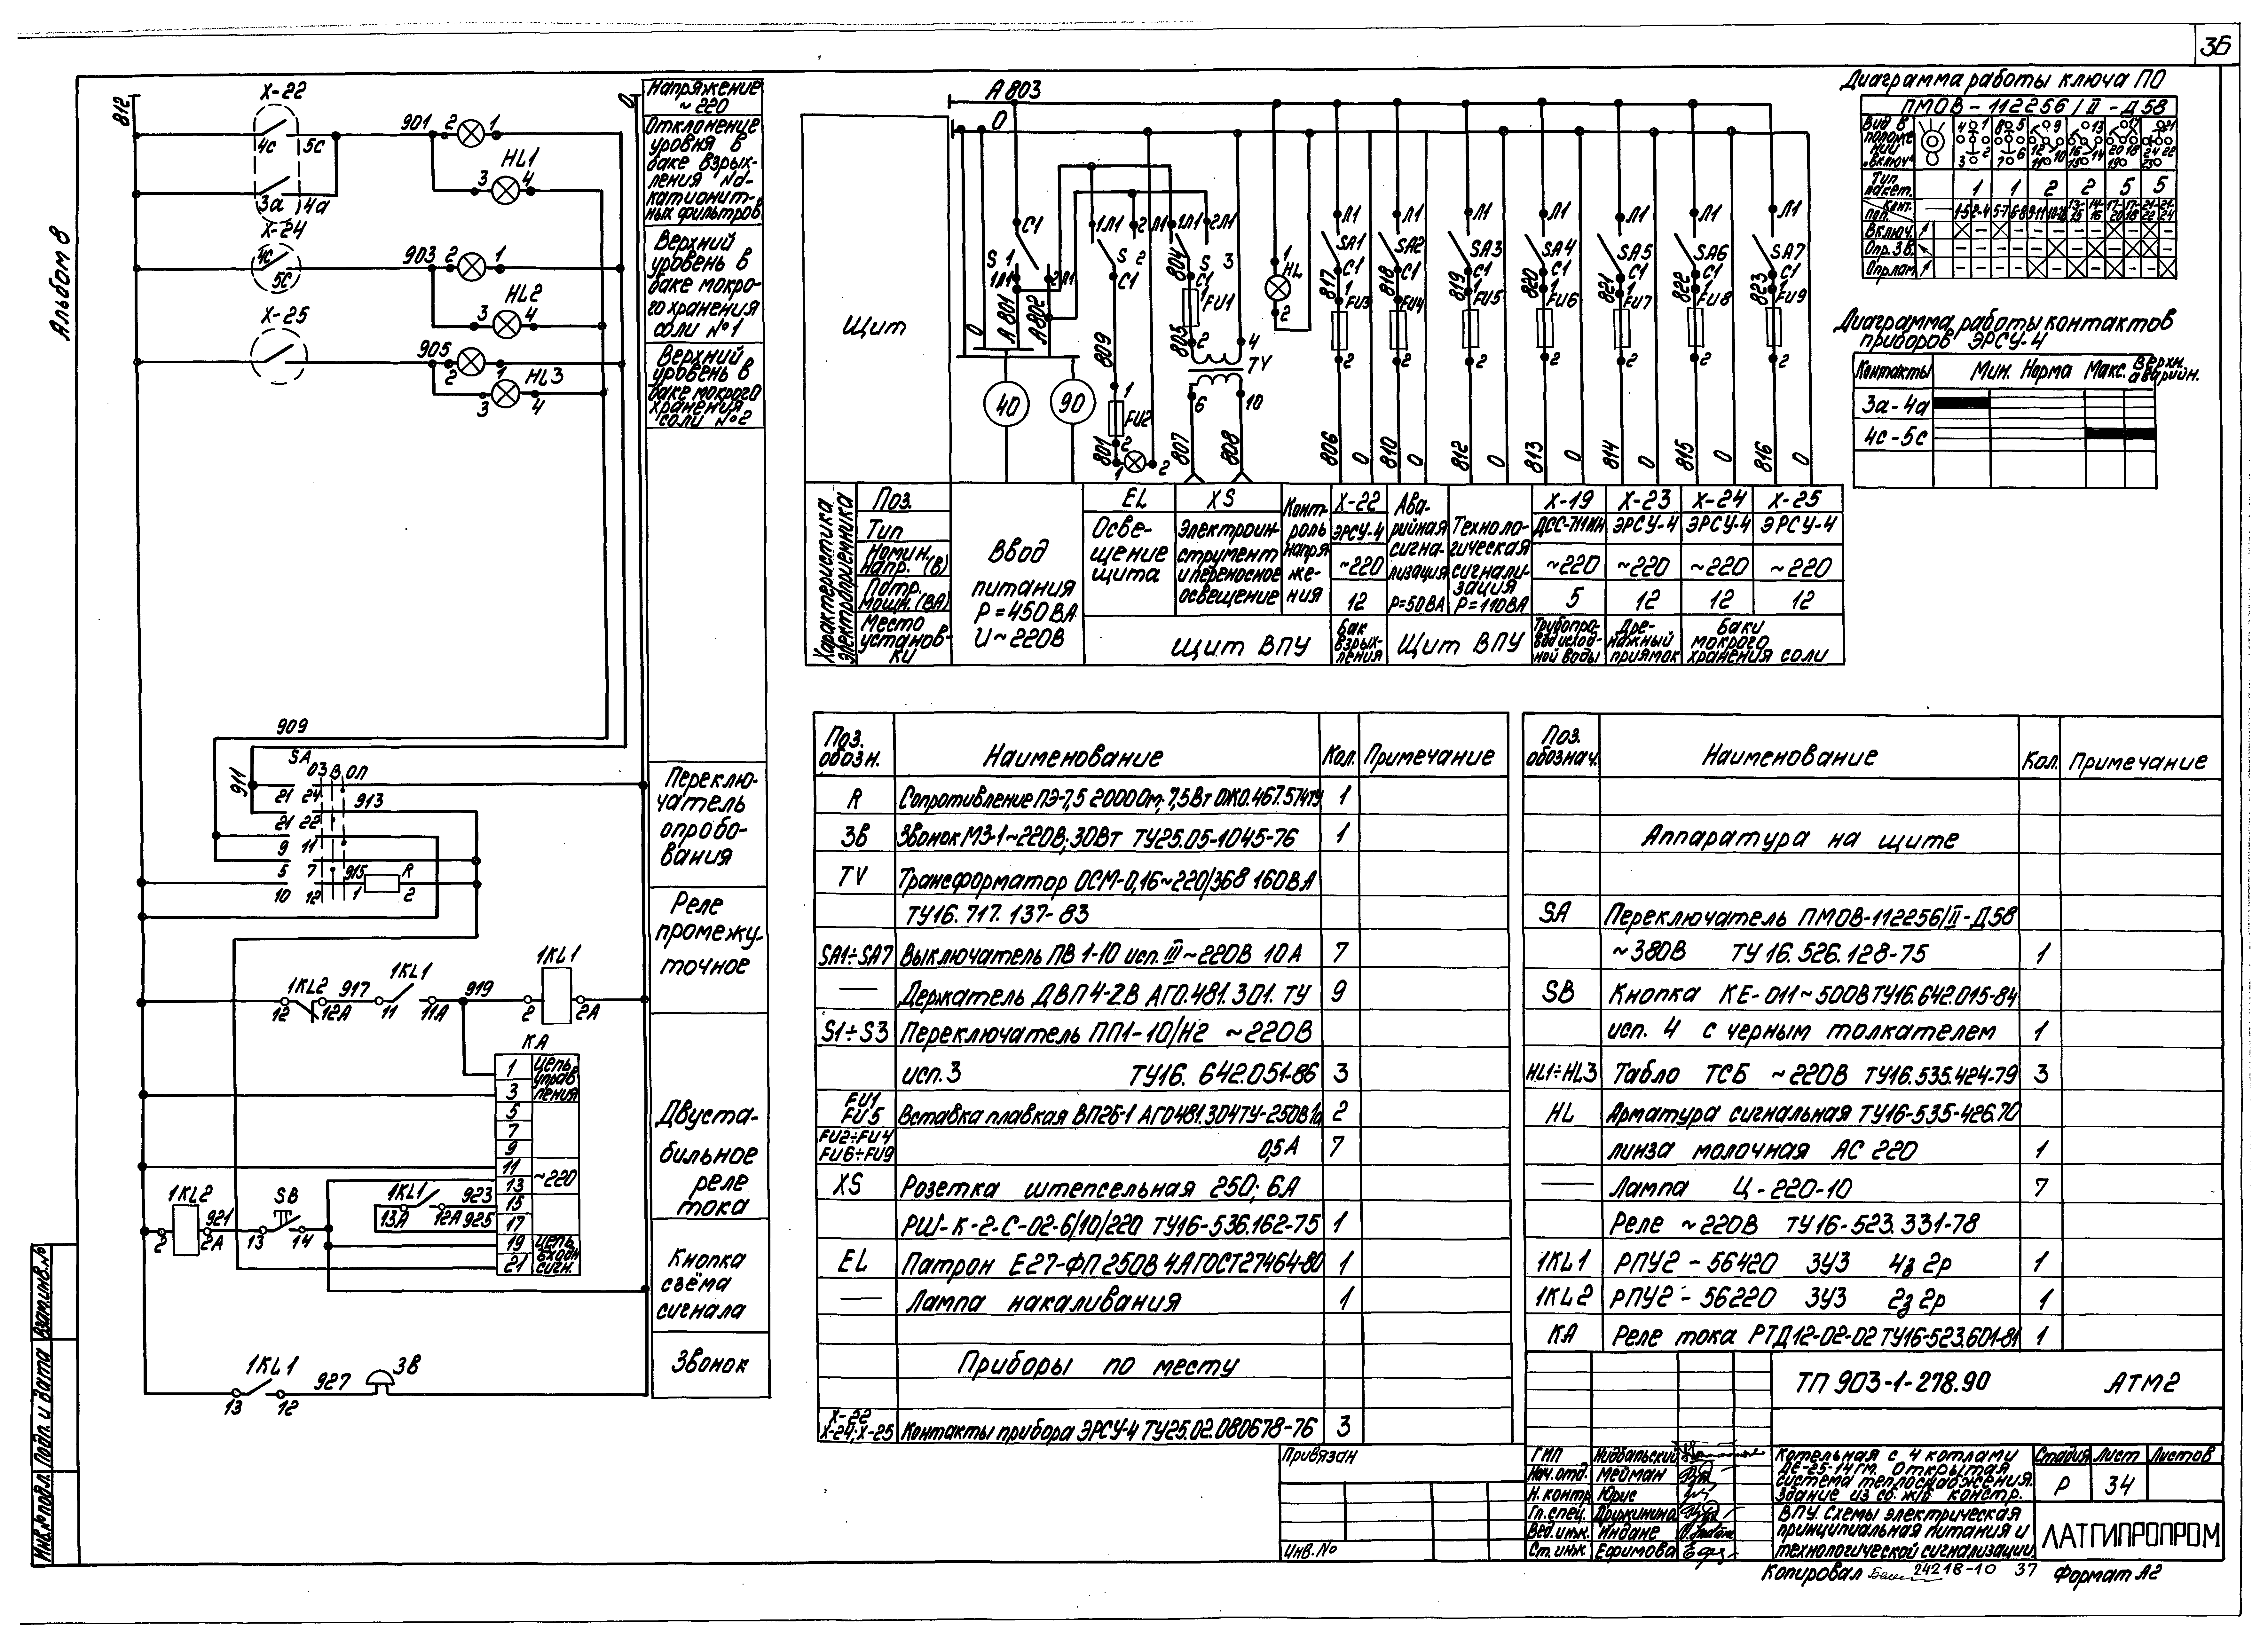 36
Альбом 8
812
Х-22
4с
5с
3а
4а
901
2
1
HL1
3
4
Х-24
4с
5с
903
2
1
HL2
3
4
Х-25
905
2
1
HL3
3
4
0
Напряжение
~ 220
Отклонение
уровня в
баке взрых-
ления Na-
катионит-
ных фильтров
Верхний
уровень в
баке мокро-
го хранения
соли №1
Верхний
уровень в
баке мокрого
хранения
соли №2
Переклю-
чатель
опробо-
вания
Реле
промежу-
точное
Двуста-
бильное
реле
тока
Кнопка
съёма
сигнала
Звонок
909
SA
911
ОЗ В ОП
21 24 913
21 22
9 11
5 7 915 R
10 12 1 2
1KL2 917 1KL1 919 1KL1
12 12А 11 11А 2 2А
КА
1 Цепь
управ-
3 ления
5
7
9
11
13 ~220
15
17
19 Цепь
входн.
21 сигн.
1KL2 921 SB
2 2А 13 14
1KL1 923
13А 12А 925
1KL1 927 ЗВ
13 12
А 803
0
Щит
0
С1
S1
1Л1 2Л1
А 801
А 802
40
90
1Л1 2Л1
S 2
С1
809
1
FU2
2
801
1 2
1Л1 2Л1
804
S 3
С1
1
FU1
805
2 4
TV
6 10
807
808
1
HL
2
Л1 Л1 Л1 Л1 Л1 Л1 Л1
SA1 SA2 SA3 SA4 SA5 SA6 SA7
С1 С1 С1 С1 С1 С1 С1
817 818 819 820 821 822 823
1 1 1 1 1 1 1
FU3 FU4 FU5 FU6 FU7 FU8 FU9
2 2 2 2 2 2 2
806 0 810 0 812 0 813 0 814 0 815 0 816 0
Характеристика
электроприемника
Поз.
Тип
Номин.
напр. (В)
Потр.
мощн. (ВА)
Место
установ-
ки
Ввод
питания
Р=450ВА
U~220В
EL
Осве-
щение
щита
XS
Электроин-
струмент
и переносное
освещение
Конт-
роль
напря-
же-
ния
Щит ВПУ
Х-22
ЭРСУ-4
~220
12
Бак
взрых-
ления
Ава-
рийная
сигна-
лизация
Р=50ВА
Техноло-
гическая
сигнали-
зация
Р=110ВА
Щит ВПУ
Х-19
~220
5
Трубопро-
вод исход-
ной воды
Х-23
ЭРСУ-4
~220
12
Дре-
нажный
приямок
Х-24
ЭРСУ-4
~220
12
Х-25
ЭРСУ-4
~220
12
Баки
мокрого
хранения соли
Диаграмма работы ключа ПО
ПМОВ-112256/II-Д58
Вид в
положе
нии
„включ"
4 1 3 2
8 5 7 6
9 12 10 11
13 16 14 15
17 20 18 19
21 24 22 23
Тип
пакет.
1 1 2 2 5 5
Конт.
Пол.
1-3 2-4 5-7 6-8 9-11 10-12 13-15 14-16 17-20 17-18 21-22 21-24
Включ.
Опр.ЗВ.
Опр.лам
Диаграмма работы контактов
приборов ЭРСУ-4
Контакты Мин. Норма Макс. Верхн.
аварийн.
3а-4а
4с-5с
Поз.
обозн. Наименование Кол. Примечание
R Сопротивление ПЭ-7,5 2000Ом; 7,5Вт ОЖ0.467.574ТУ 1
ЗВ Звонок МЗ-1~220В; 30Вт ТУ25.05-1045-76 1
TV Трансформатор ОСМ-0,16~220/36В 160ВА
ТУ16. 717. 137-83
SA1÷SA7 Выключатель ПВ 1-10 исп. III ~220В 10А 7
— Держатель ДВП4-2В АГ0.481.301. ТУ 9
S1÷S3 Переключатель ПП1-10/Н2 ~220В
исп.3 ТУ16. 642.051-86 3
FU1
FU5 Вставка плавкая ВП2Б-1 АГ0481.304ТУ-250В1а 2
FU2÷FU4
FU6÷FU9 0,5А 7
XS Розетка штепсельная 250; 6А
РШ-К-2-С-02-6/10/220 ТУ16-536.162-75 1
EL Патрон Е27-ФП 250В 4А ГОСТ27464-80 1
— Лампа накаливания 1
Приборы по месту
Х-22
Х-24; Х-25 Контакты прибора ЭРСУ-4 ТУ25.02.080678-76 3
Поз.
обознач. Наименование Кол. Примечание
Аппаратура на щите
SA Переключатель ПМОВ-112256/II-Д58
~380В ТУ 16.526.128-75 1
SB Кнопка КЕ-011~500В ТУ16.642.015-84
исп. 4 с черным толкателем 1
HL1÷HL3 Табло ТСБ ~220В ТУ16.535.424-79 3
HL Арматура сигнальная ТУ16-535-426.70
линза молочная АС 220 1
— Лампа Ц-220-10 7
Реле ~220В ТУ16-523.331-78
1KL1 РПУ2-56420 3У3 4з 2р 1
1KL2 РПУ2-56220 3У3 2з 2р 1
КА Реле тока РТД12-02-02 ТУ16-523.601-81 1
ТП 903-1-278.90 АТМ2
Привязан
Инв.№
ГИП Нидбальский
Нач.отд. Мейман
Н.контр Юрис
Гл.спец. Дружинина
Вед.инж. Индане
Ст.инж Ефимова
Котельная с 4 котлами
ДЕ-25-14ГМ. Открытая
система теплоснабжения.
Здание из сб. ж/б констр.
Стадия Лист Листов
Р 34
ВПУ. Схемы электрическая
принципиальная питания и
технологической сигнализации
ЛАТГИПРОПРОМ
Копировал 24218-10 37 Формат А2
Взам.инв.№
Подп. и дата
Инв.№ подл.